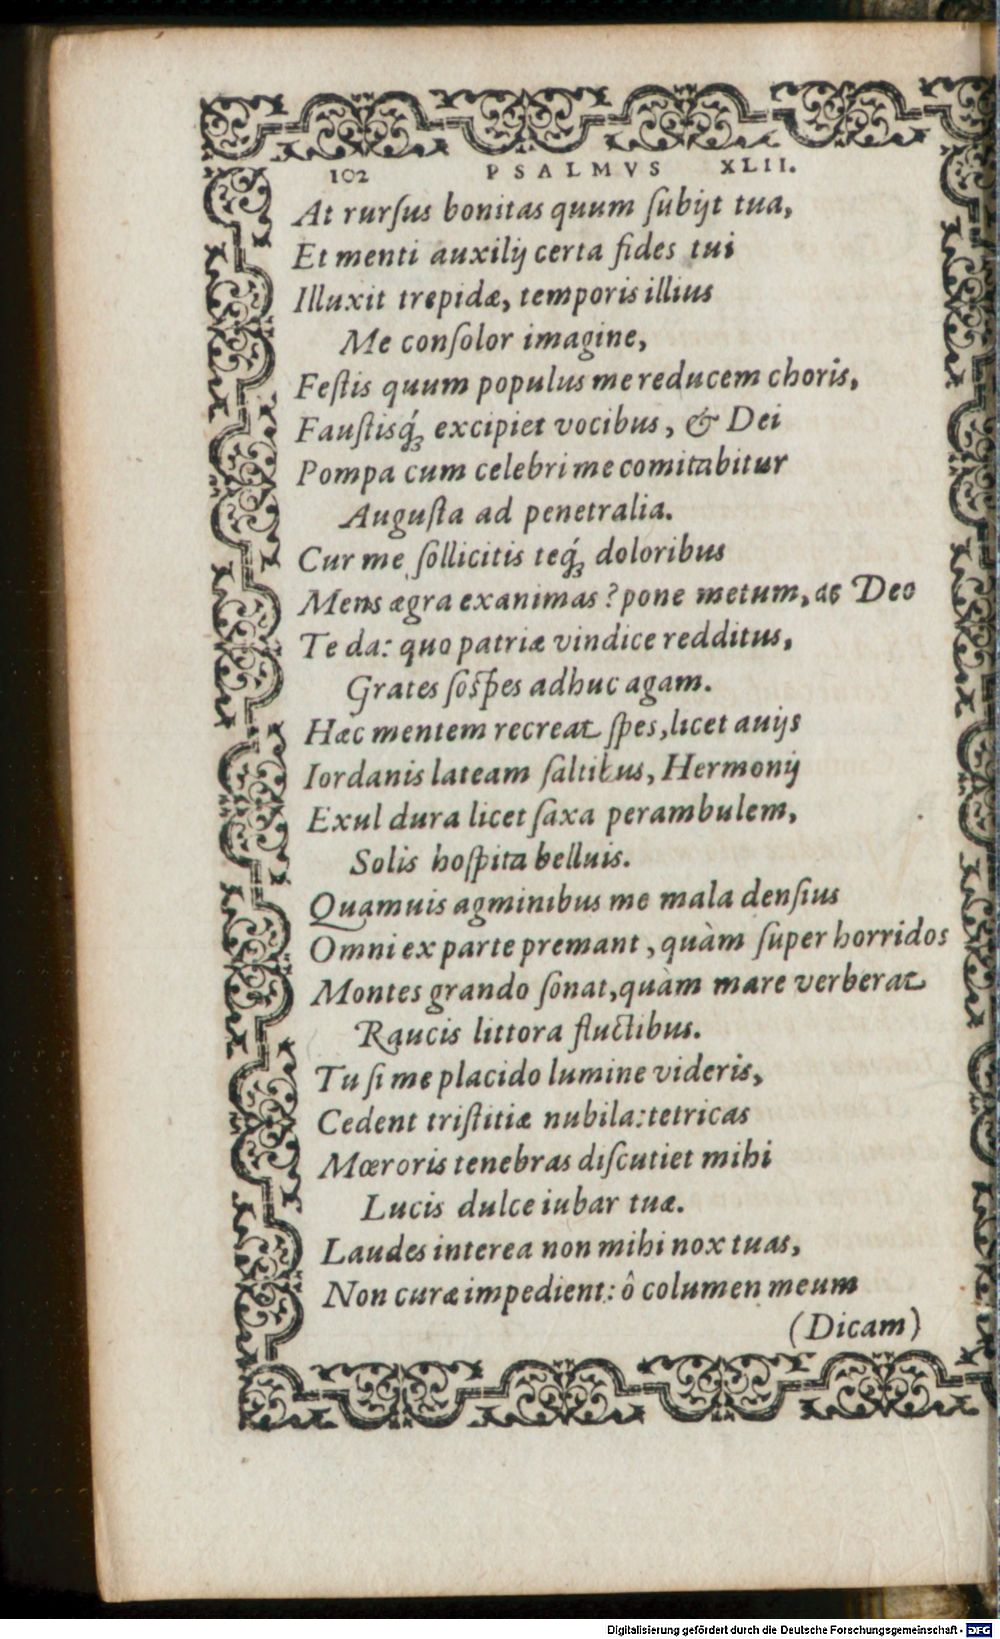 102 PSALMVS XLII.
At rurſus bonitas quum ſubijt tua,
Et menti auxilij certa fides tui
Illuxit trepidæ, temporis illius
Me conſolor imagine,
Feſtis quum populus me reducem choris,
Fauſtisq́ꝫ excipiet vocibus, & Dei
Pompa cum celebri me comitabitur
Auguſta ad penetralia.
Cur me ſollicitis teq́ꝫ doloribus
Mens ægra exanimas? pone metum, ac Deo
Te da: quo patriæ vindice redditus,
Grates ſoſpes adhuc agam.
Hæc mentem recreat ſpes, licet auijs
Iordanis lateam ſaltibus, Hermonij
Exul dura licet ſaxa perambulem,
Solis hoſpita belluis.
Quamuis agminibus me mala denſius
Omni ex parte premant, quàm ſuper horridos
Montes grando ſonat, quàm mare verberat
Raucis littora fluctibus.
Tu ſi me placido lumine videris,
Cedent triſtitiæ nubila: tetricas
Mœroris tenebras diſcutiet mihi
Lucis dulce iubar tuæ.
Laudes interea non mihi nox tuas,
Non curæ impedient: ô columen meum
(Dicam)
Digitalisierung gefördert durch die Deutsche Forschungsgemeinschaft - DFG